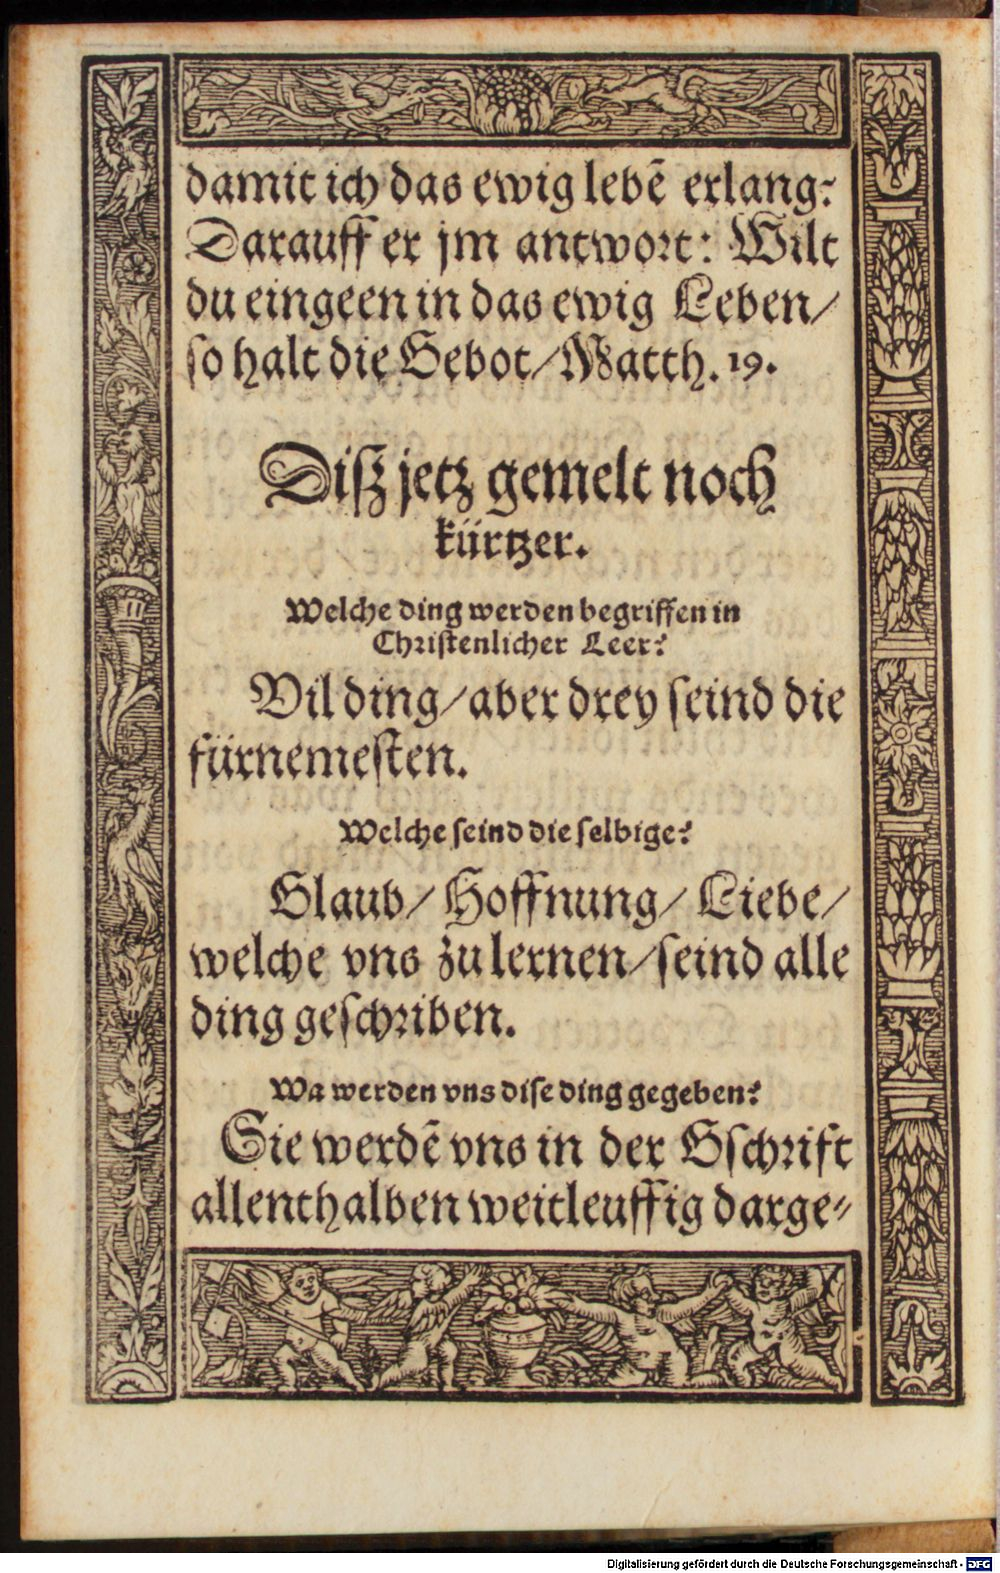 damit ich das ewig lebē erlang?
Darauff er jm antwort: Wilt
du eingeen in das ewig Leben/
so halt die Gebot/Matth. 19.
Disz jetz gemelt noch
kürtzer.
Welche ding werden begriffen in
Christenlicher Leer?
Vil ding/aber drey seind die
fürnemesten.
Welche seind die selbige?
Glaub/ Hoffnung/ Liebe/
welche vns zu lernen/seind alle
ding geschriben.
Wa werden vns dise ding gegeben?
Sie werdē vns in der Gschrift
allenthalben weitleuffig darge-
Digitalisierung gefördert durch die Deutsche Forschungsgemeinschaft - DFG